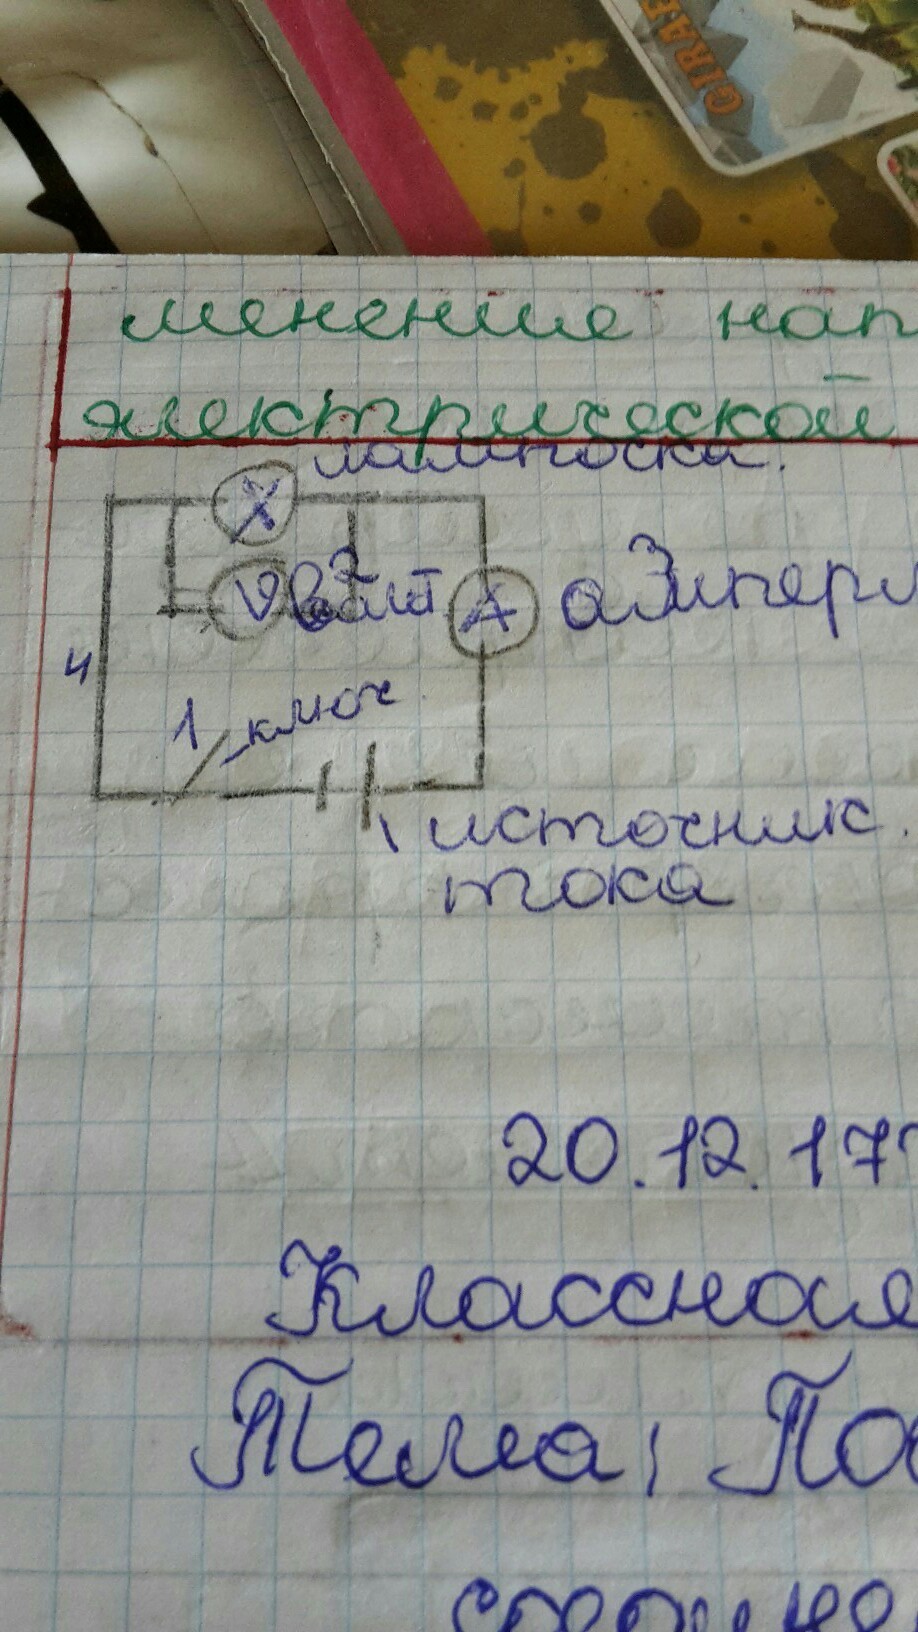 GIRAF
менение нап
электрической
лампочка.
X
V вольт
2
A
3
амперм
4
1 ключ
источник.
тока
20.12.17
Классная
Тема: По